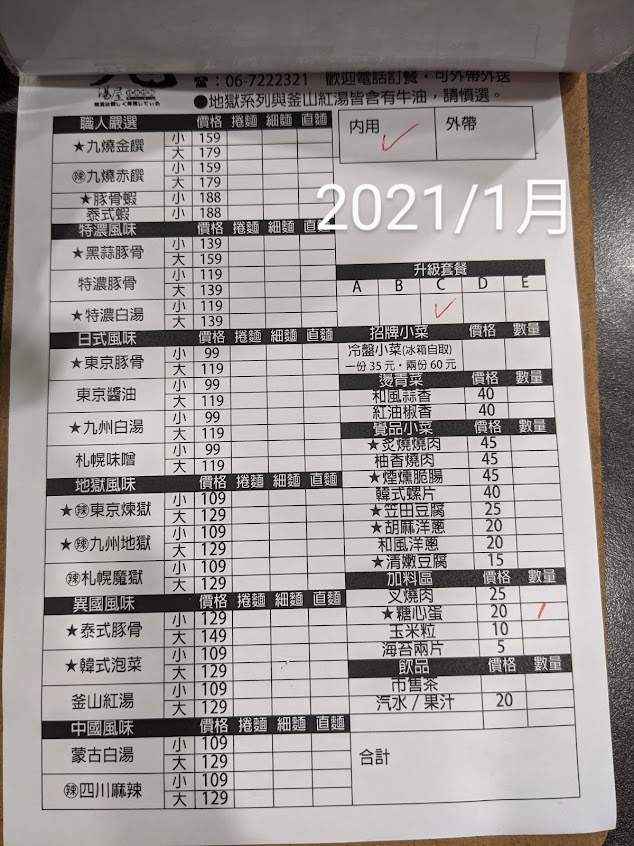 湯屋
☎：06-7222321 歡迎電話訂餐・可外帶外送
●地獄系列與釜山紅湯皆含有牛油，請慎選。
內用 外帶
2021/1月
職人嚴選 價格 捲麵 細麵 直麵
★九燒金饌 小 159
大 179
辣九燒赤饌 小 159
大 179
★豚骨蝦 小 188
泰式蝦 小 188
特濃風味 價格 捲麵 細麵 直麵
★黑蒜豚骨 小 139
大 159
特濃豚骨 小 119
大 139
★特濃白湯 小 119
大 139
日式風味 價格 捲麵 細麵 直麵
★東京豚骨 小 99
大 119
東京醬油 小 99
大 119
★九州白湯 小 99
大 119
札幌味噌 小 99
大 119
地獄風味 價格 捲麵 細麵 直麵
★辣東京煉獄 小 109
大 129
★辣九州地獄 小 109
大 129
辣札幌魔獄 小 109
大 129
異國風味 價格 捲麵 細麵 直麵
★泰式豚骨 小 129
大 149
★韓式泡菜 小 109
大 129
釜山紅湯 小 109
大 129
中國風味 價格 捲麵 細麵 直麵
蒙古白湯 小 109
大 129
辣四川麻辣 小 109
大 129
升級套餐
A B C D E
招牌小菜 價格 數量
冷盤小菜(冰箱自取)
一份35元・兩份60元
燙青菜 價格 數量
和風蒜香 40
紅油椒香 40
覺品小菜 價格 數量
★炙燒燒肉 45
柚香燒肉 45
★煙燻脆腸 45
韓式螺片 40
★笠田豆腐 25
★胡麻洋蔥 20
和風洋蔥 20
★清嫩豆腐 15
加料區 價格 數量
叉燒肉 25
★糖心蛋 20
玉米粒 10
海苔兩片 5
飲品 價格 數量
市售茶
汽水/果汁 20
合計